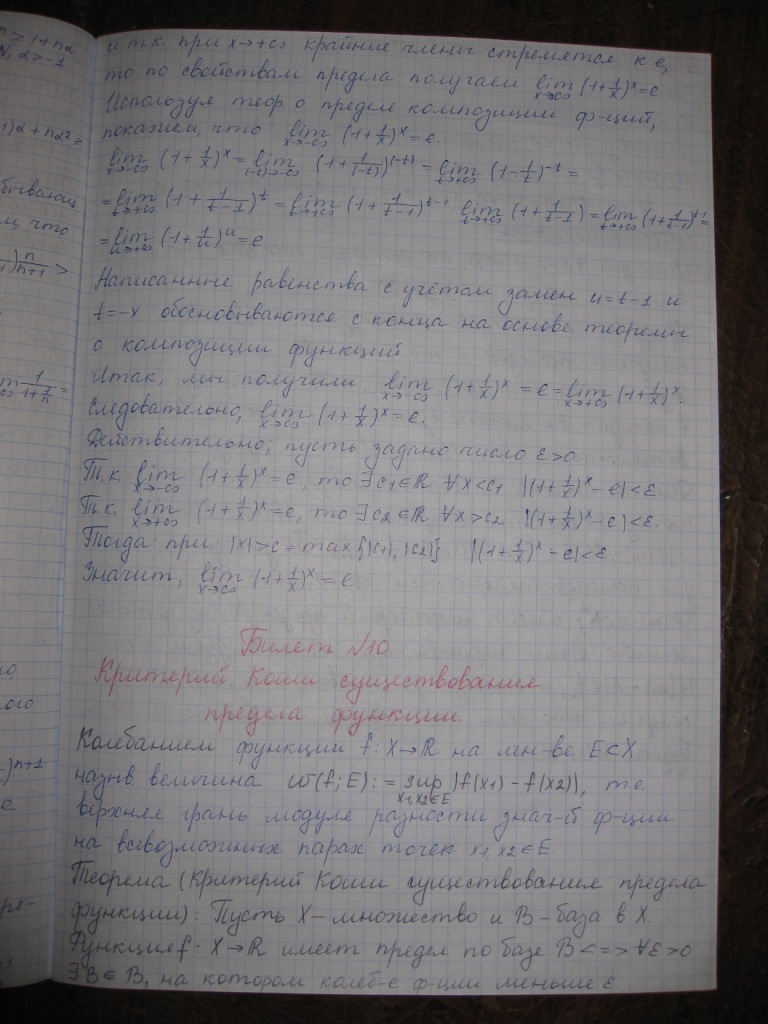 n > 1+nα
N, α>-1
1)α + nα² >
бывающ
м, что
1) n/(n+1) >
1/(1+1/n) =
)^(n+1)
и т.к. при x→+∞ крайние члены стремятся к e,
то по свойствам предела получаем lim_{x→∞} (1+1/x)^x = e
Используя теор. о пределе композиции ф-ций,
покажем, что lim_{x→-∞} (1+1/x)^x = e.
lim_{x→-∞} (1+1/x)^x = lim_{(-t)→-∞} (1+1/(-t))^(-t) = lim_{t→+∞} (1-1/t)^(-t) =
= lim_{t→+∞} (1+1/(t-1))^t = lim_{t→+∞} (1+1/(t-1))^(t-1) · lim_{t→+∞} (1+1/(t-1)) = lim_{t→+∞} (1+1/(t-1))^(t-1) =
= lim_{u→+∞} (1+1/u)^u = e
Написанные равенства с учётом замен u=t-1 и
t=-x обосновываются с конца на основе теоремы
о композиции функций.
Итак, мы получили lim_{x→-∞} (1+1/x)^x = e = lim_{x→+∞} (1+1/x)^x.
Следовательно, lim_{x→∞} (1+1/x)^x = e.
Действительно, пусть задано число ε>0
Т.к. lim_{x→-∞} (1+1/x)^x = e, то ∃c1∈ℝ ∀x<c1 |(1+1/x)^x - e|<ε
Т.к. lim_{x→+∞} (1+1/x)^x = e, то ∃c2∈ℝ ∀x>c2 |(1+1/x)^x - e|<ε.
Тогда при |x|>c = max{|c1|, |c2|} |(1+1/x)^x - e|<ε.
Значит, lim_{x→∞} (1+1/x)^x = e
Билет №10.
Критерий Коши существования
предела функции.
Колебанием функции f: X→ℝ на мн-ве E⊂X
назыв. величина ω(f; E) := sup_{x1,x2∈E} |f(x1) - f(x2)|, т.е.
верхняя грань модуля разности знач-й ф-ции
на всевозможных парах точек x1, x2∈E.
Теорема (Критерий Коши существования предела
функции): Пусть X - множество и B - база в X.
Функция f: X→ℝ имеет предел по базе B <=> ∀ε>0
∃B∈B, на котором колеб-е ф-ции меньше ε.